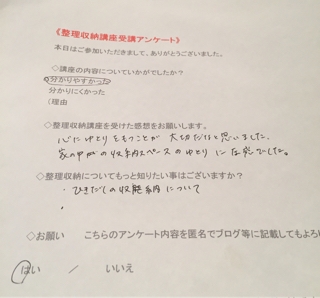 《整理収納講座受講アンケート》
本日はご参加いただきまして、ありがとうございました。
◇講座の内容についていかがでしたか？
分かりやすかった
分かりにくかった
（理由
◇整理収納講座を受けた感想をお願いします。
心にゆとりをもつことが 大切だなと思いました。
家の中の収納スペースのゆとりに
◇整理収納についてもっと知りたい事はございますか？
・ひきだしの収納案内について
・
◇お願い こちらのアンケート内容を匿名でブログ等に記載してもよろ
はい ／ いいえ